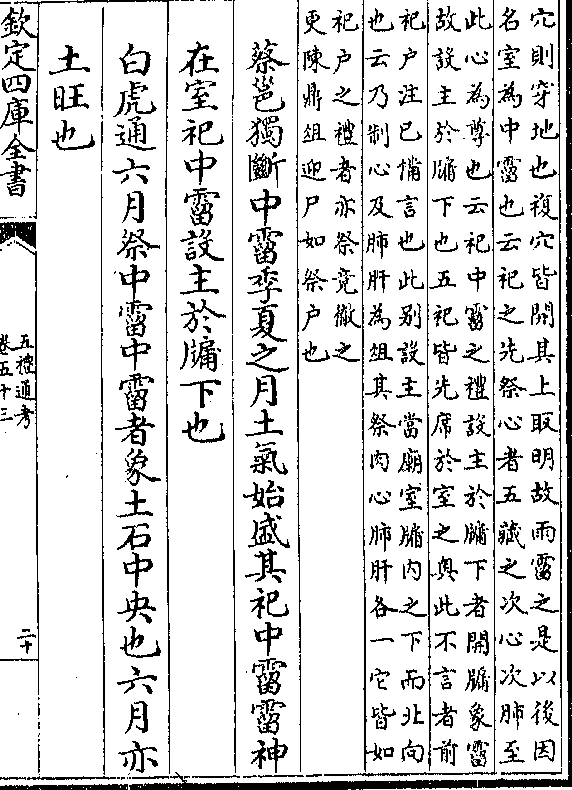 穴則穿地也複穴皆開其上取明故雨霤之是以後因
名室為中霤也云祀之先祭心者五藏之次心次肺至
此心為尊也云祀中霤之禮設主於牖下者開牖象霤
故設主於牖下也五祀皆先席於室之奥此不言者前
祀户注已備言也此别設主當廟室牖内之下而北向
也云乃制心及肺肝為俎其祭肉心肺肝各一它皆如
祀户之禮者亦祭竟徹之
更陳鼎俎迎尸如祭户也
蔡邕獨斷中霤季夏之月土氣始盛其祀中霤霤神
在室祀中霤設主於牖下也
白虎通六月祭中霤中霤者象土石中央也六月亦
土旺也
欽定四庫全書
五禮通考
卷五十三
二十